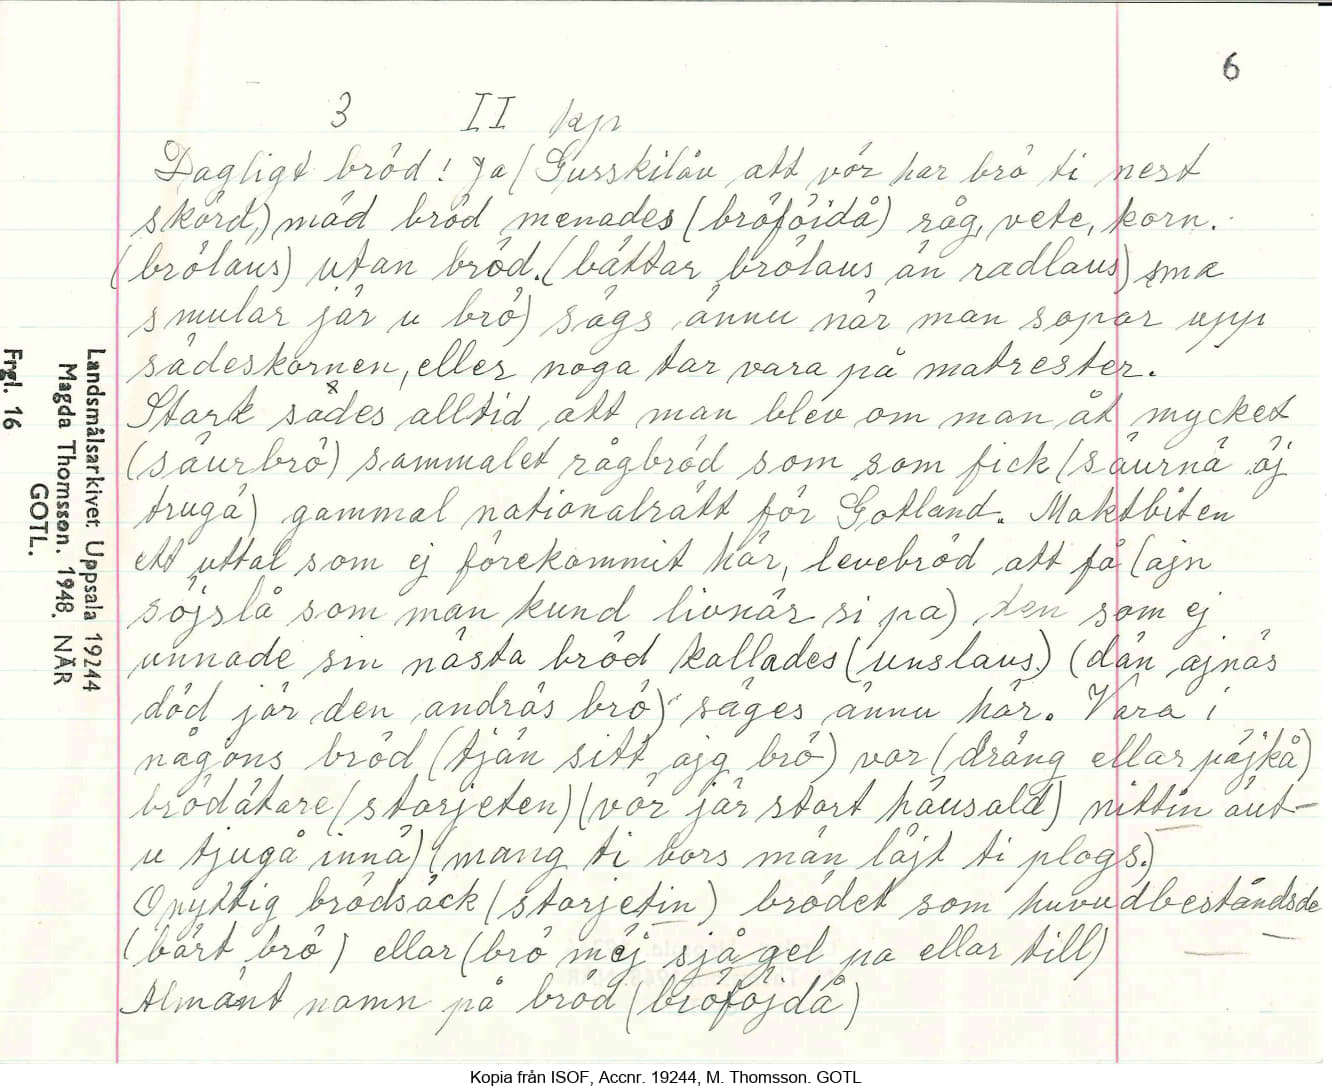 6
3 II kpr
Dagligt bröd! Ja (Gusskilåv att vör har brö ti nest
skörd,) mäd bröd menades (bröföidå) råg, vete, korn.
(brölaus) utan bröd. (bättar brölaus än radlaus) sma
smular jär u brö) sägs ännu när man sopar upp
sädeskornen, eller noga tar vara på matrester.
Stark sades alltid att man blev om man åt mycket
(säurbrö) sammalet rågbröd som som fick (säurnä äj
trugä) gammal nationalrätt för Gotland. Maktbiten
ett uttal som ej förekommit här, levebröd att få (ajn
söjslå som man kund livnär si pa) den som ej
unnade sin nästa bröd kallades (unslaus) (dän ajnäs
död jär den andräs brö) säges ännu här. Vara i
någons bröd (tjän sitt ajg brö) var (dräng ellar päjkå)
brödätare (storjeten) (vör jär stort häusald) nittin äut-
u tjugå innä) (mang ti bors män läjt ti plogs.)
Onyttig brödsäck (storjetin) brödet som huvudbeståndsde
(bart brö) ellar (brö mäj sjå gel pa ellar till)
Almänt namn på bröd (bröföjdå)
Landsmålsarkivet Uppsala 19244
Magda Thomsson. 1948. NÄR
GOTL.
Frgl. 16
Kopia från ISOF, Accnr. 19244, M. Thomsson. GOTL